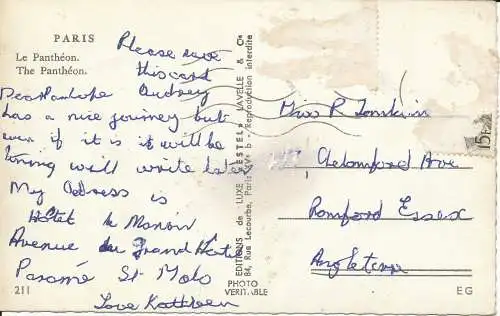 PARIS
Le Panthéon.
The Panthéon.
Please save
this card
Audrey
has a nice journey but
even if it is it will be
tiring will write later
My Adress is
Hôtel le Manoir
Avenue du Grand
Paramé St Malo
Love Kathleen
211
PHOTO
VERITABLE
EDITIONS de LUXE «ESTEL» LAVELLE & Cie
84, Rue Lecourbe, Paris XVe b - Reproduction interdite
Miss R Tomkin
Chelmsford Ave
Romford Essex
Angleterre
15F
EG